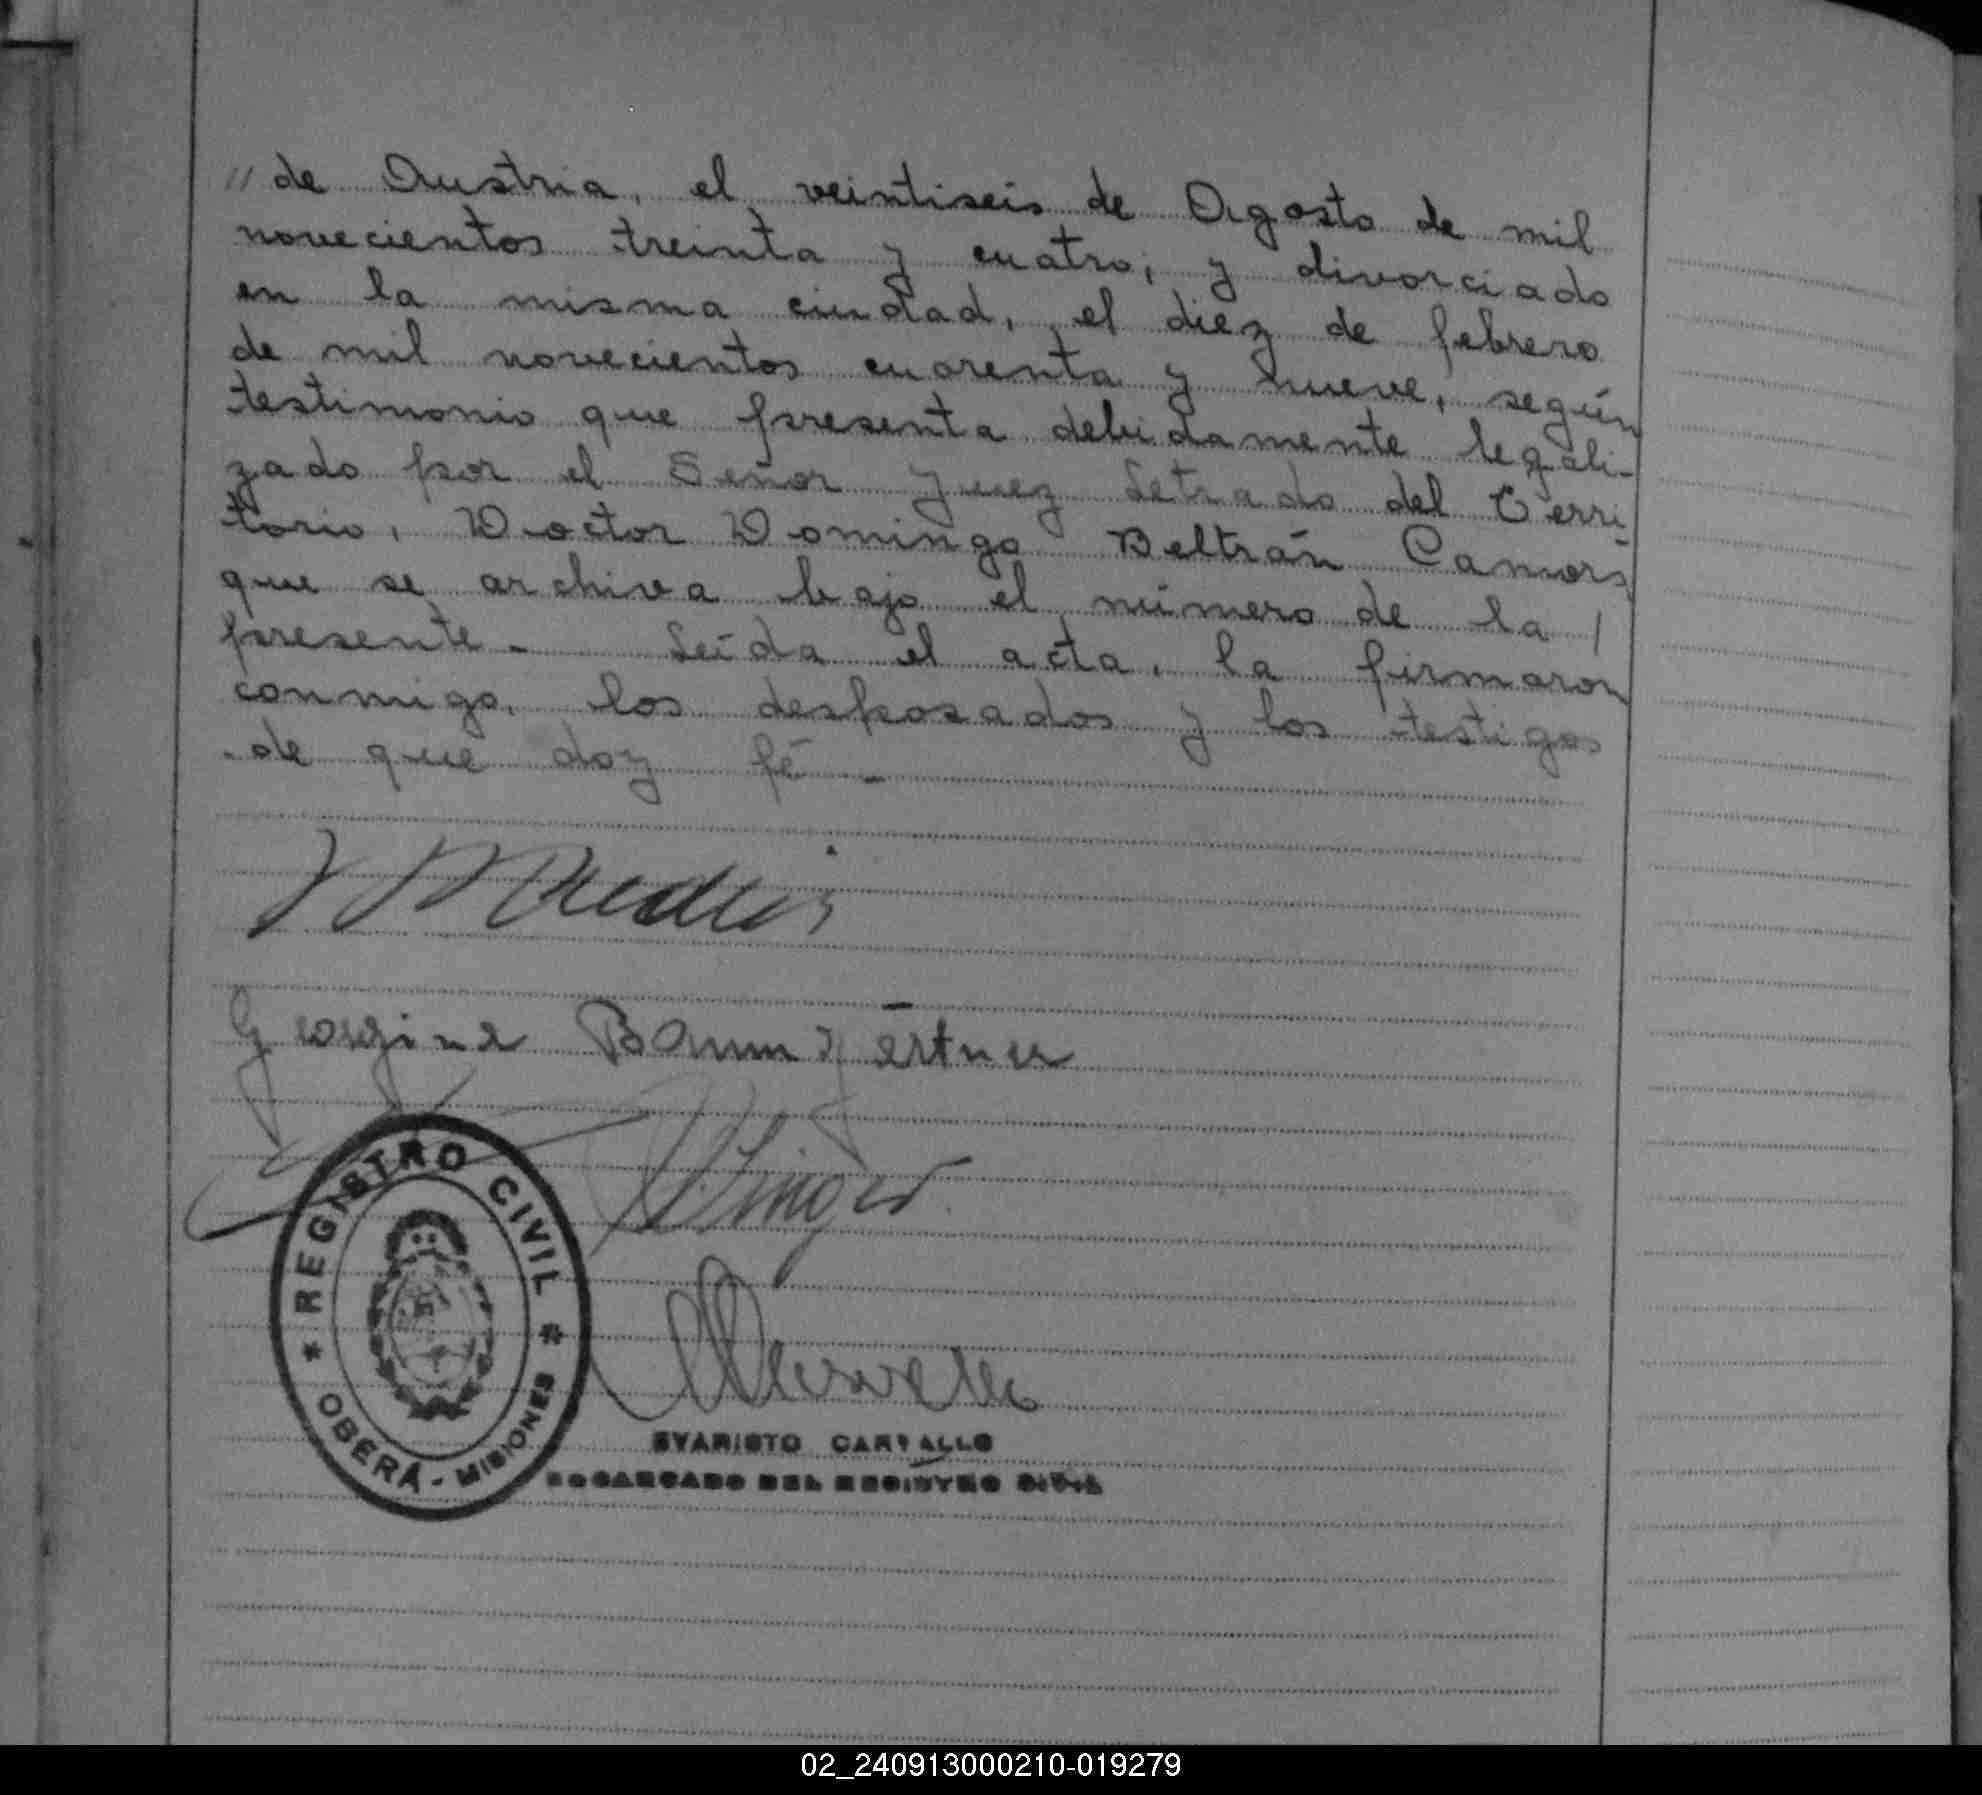 " de Austria, el veintiseis de Agosto de mil
novecientos treinta y cuatro, y divorciado
en la misma ciudad, el diez de febrero
de mil novecientos cuarenta y nueve, según
testimonio que presenta debidamente legali-
zado por el Señor Juez Letrado del Terri-
torio, Doctor Domingo Beltrán Camors
que se archiva bajo el número de la /
presente.- Leída el acta, la firmaron
conmigo, los desposados y los testigos
-de que doy fé.-
Georgine Baumgärtner
REGISTRO CIVIL
* OBERÁ - MISIONES *
EVARISTO CARVALLO
ENCARGADO DEL REGISTRO CIVIL
02_240913000210-019279